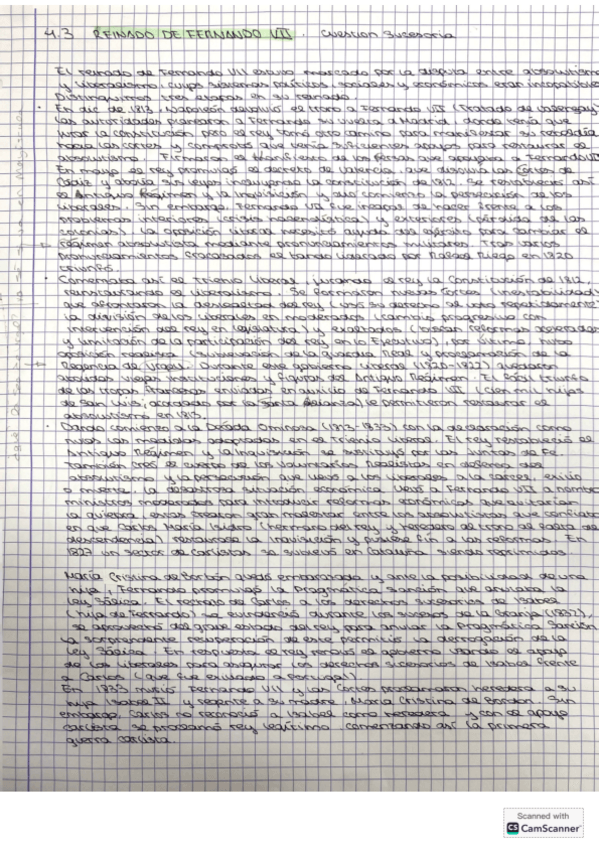 4.3 REINADO DE FERNANDO VII. Cuestión Sucesoria
El reinado de Fernando VII estuvo marcado por la disputa entre absolutismo
y liberalismo, cuyos sistemas políticos, sociales y económicos eran incompatibles
Distinguimos tres etapas en su reinado.
En dic de 1813, Napoleón devolvió el trono a Fernando VII (Tratado de Valençay)
Las autoridades planearon a Fernando su vuelta a Madrid, donde tenía que
jurar la constitución pero el rey tomó otro camino para manifestar su rebeldía
hacia las cortes y comprobó que tenía suficientes apoyos para restaurar el
absolutismo. Firmaron el Manifiesto de los Persas que apoyaba a Fernando VII
En mayo el rey promulgó el decreto de Valencia, que disolvía las Cortes de
Cádiz y abolía sus leyes incluyendo la constitución de 1812. Se restableció así
el Antiguo Régimen y la Inquisición y dio comienzo la persecución de los
liberales. Sin embargo, Fernando VII fue incapaz de hacer frente a los
problemas interiores (crisis hacendística) y exteriores (pérdida de las
colonias). La oposición liberal necesitó ayuda del ejército para cambiar el
régimen absolutista mediante pronunciamientos militares. Tras varios
pronunciamientos fracasados el bando liderado por Rafael Riego en 1820
triunfó.
Comenzaba así el Trienio Liberal, jurando el rey la Constitución de 1812,
reinstaurando el liberalismo. Se formaron nuevas Cortes (inestabilidad)
que afrontaron la deslealtad del rey (usó su derecho de veto repetidamente)
la división de los liberales en moderados (cambio progresivo con
intervención del rey en legislatura) y exaltados (buscan reformas aceleradas
y limitación de la participación del rey en lo Ejecutivo), por último, hubo
oposición realista (sublevación de la guardia Real y proclamación de la
Regencia de Urgel). Durante este gobierno liberal (1820-1822) quedaron
abolidas viejas instituciones y figuras del Antiguo Régimen. El fácil triunfo
de las tropas francesas enviadas en auxilio de Fernando VII (cien mil hijos
de San Luis, acordado por la Santa Alianza) le permitieron restaurar el
absolutismo en 1823.
Dando comienzo a la Década Ominosa (1823-1833) con la declaración como
nulas las medidas adoptadas en el Trienio liberal. El rey restableció el
Antiguo Régimen y la Inquisición se sustituyó por las Juntas de Fe.
También creó el cuerpo de los voluntarios Realistas en defensa del
absolutismo y la persecución que llevó a los liberales a la cárcel, exilio
o muerte. La desastrosa situación económica llevó a Fernando VII a nombrar
ministros moderados para introducir reformas económicas que evitarían
la quiebra. Estas crearon gran malestar entre los absolutistas que confiaban
en que Carlos María Isidro (hermano del rey y heredero al trono de falta de
descendencia) restaurara la Inquisición y pusiera fin a las reformas. En
1827 un sector de carlistas se sublevó en Cataluña siendo reprimidos.
María Cristina de Borbón quedó embarazada y ante la posibilidad de una
hija, Fernando promulgó la Pragmática Sanción que anulaba la
Ley Sálica. El rechazo de Carlos a los derechos sucesorios de Isabel
(hija de Fernando) se evidenció durante los sucesos de la Granja (1832),
se aprovechó del grave estado del rey para anular la Pragmática Sanción
La sorprendente recuperación de este permitió la derogación de la
Ley Sálica. En respuesta el rey renovó el gobierno usando el apoyo
de los liberales para asegurar los derechos sucesorios de Isabel frente
a Carlos (que fue exiliado a Portugal)
En 1833 murió Fernando VII y las Cortes proclamaron heredera a su
hija Isabel II y regente a su madre, María Cristina de Borbón. Sin
embargo, Carlos no reconoció a Isabel como heredera y con el apoyo
carlista se proclamó rey legítimo comentando así la primera
guerra carlista.
Scanned with
CS CamScanner